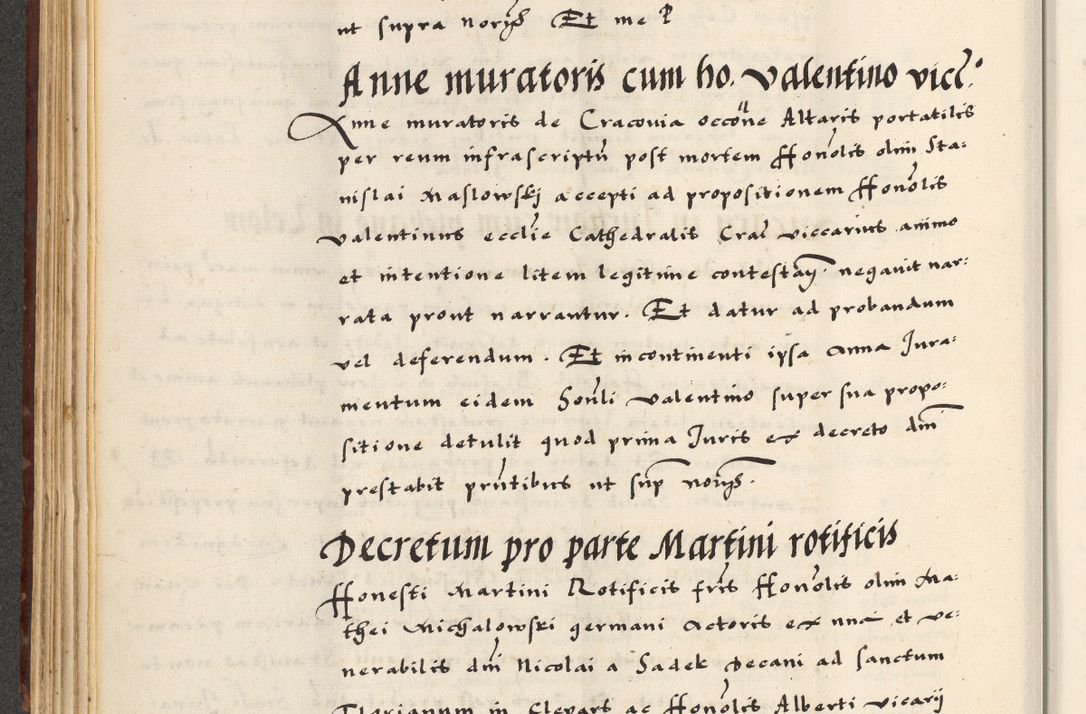 ut supra Norijs Et me P
Anne muratoris cum ho. Valentino vicc.
Anne muratoris de Cracovia occone Altaris portatilis
per reum infrascriptū post mortem Honolis olim Sta:
nislai Maslowskj accepti ad propositionem Honolis
Valentinus ecclie Cathedralis Crac viccarius animo
et intentione litem legitime contestan. negavit nar:
rata prout narrantur. Et datur ad probandum
vel deferendum. Et incontinenti ipsa Anna Jura:
mentum eidem Honli Valentino super sua propo:
sitione detulit quod prima Juris ex decreto dni
prestabit pntibus ut sup norijs.
Decretum pro parte Martini rotificis
Honesti Martini Rotificis fris Honolis olim Ma:
thei Michalowski germani Actoris ex una et ve:
nerabilis dni Nicolai a Sadek Decani ad sanctum
Florianum in Clepars ac Honolis Alberti vicarij